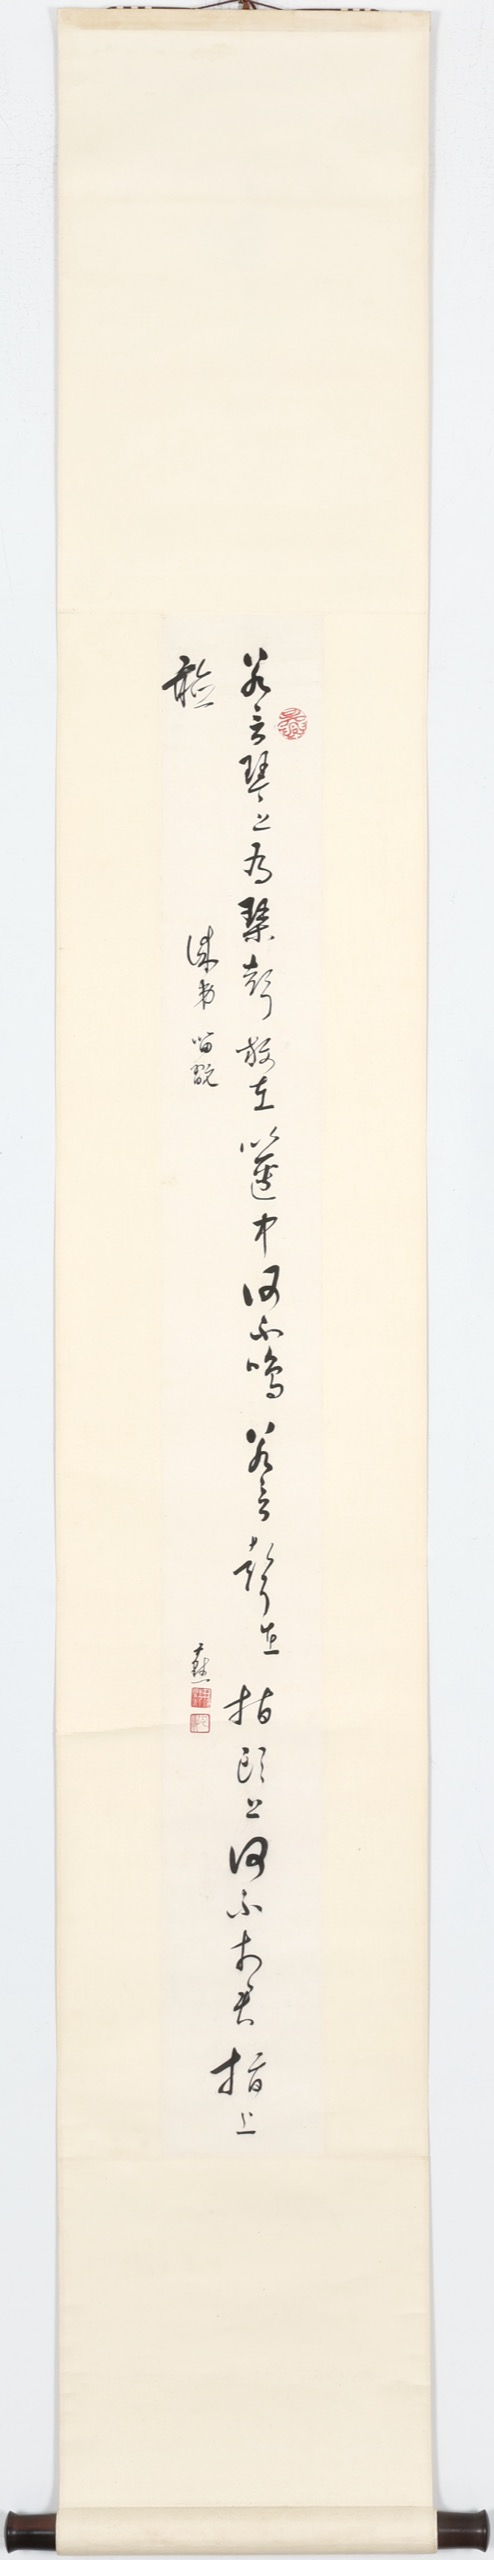 若言琴上有琹聲放在匣中何不鳴若言聲在指頭上何不於君指上
聽
留翫